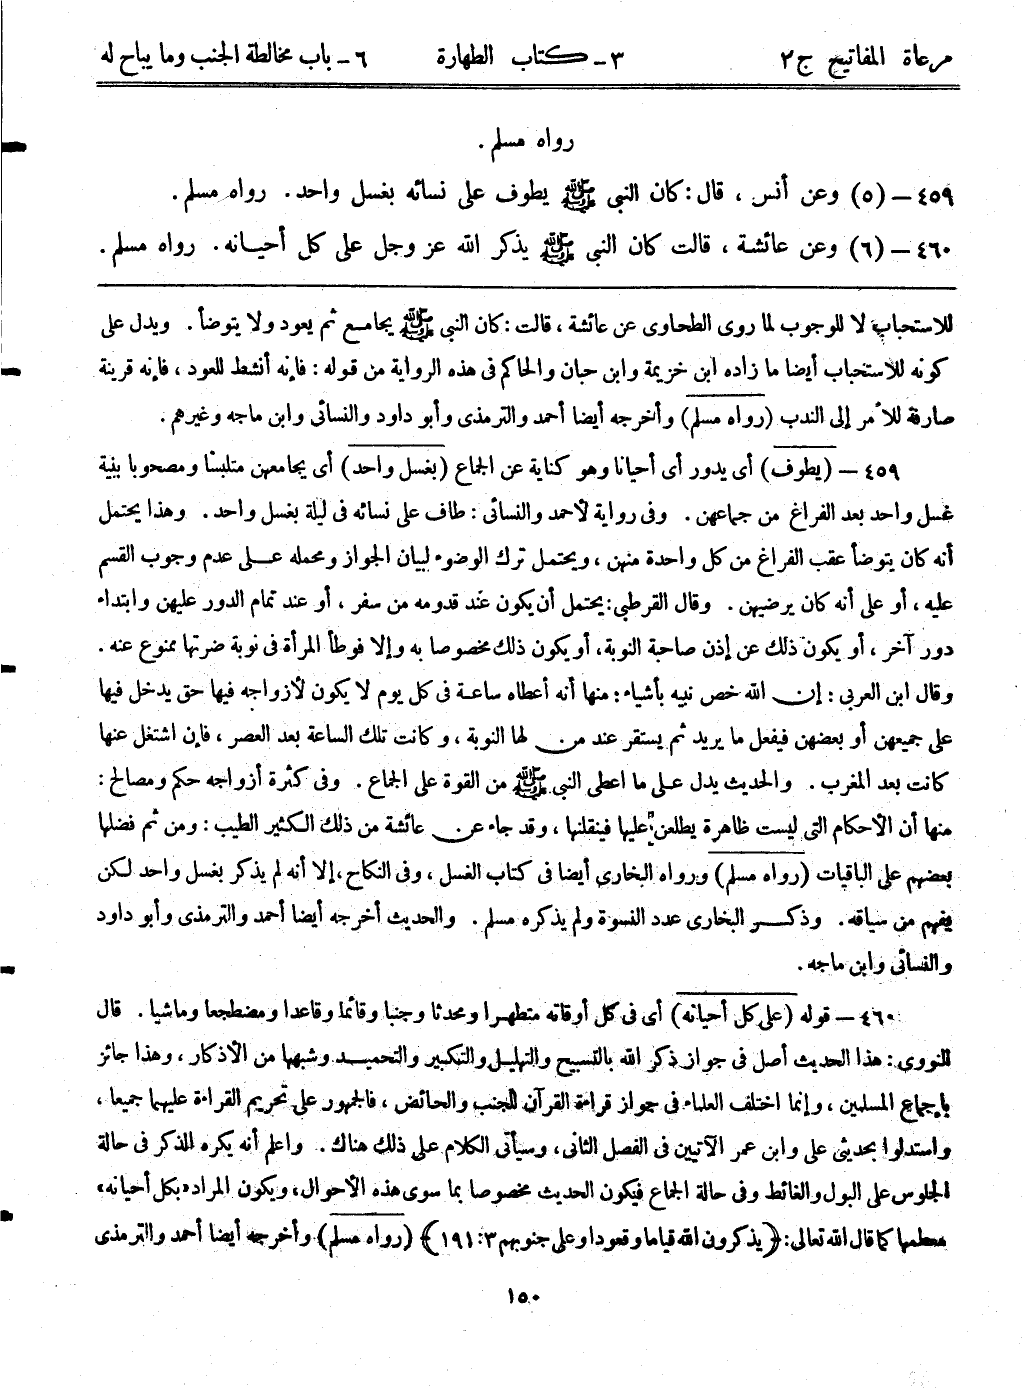 مرعاة المفاتيح ج٢ ٣ - كتاب الطهارة ٦ - باب مخالطة الجنب وما يباح له
رواه مسلم .
٤٥٩ - (٥) وعن أنس ، قال : كان النبى ﷺ يطوف على نسائه بغسل واحد . رواه مسلم .
٤٦٠ - (٦) وعن عائشة ، قالت كان النبى ﷺ يذكر الله عز وجل على كل أحيانه . رواه مسلم .
للاستحباب لا للوجوب لما روى الطحاوى عن عائشة ، قالت : كان النبى ﷺ يجامع ثم يعود ولا يتوضأ . ويدل على
كونه للاستحباب أيضا ما زاده ابن خزيمة وابن حبان والحاكم فى هذه الرواية من قوله : فإنه أنشط للعود ، فإنه قرينة
صارفة للأمر إلى الندب (رواه مسلم) وأخرجه أيضا أحمد والترمذى وأبو داود والنسائى وابن ماجه وغيرهم .
٤٥٩ - (يطوف) أى يدور أى أحيانا وهو كناية عن الجماع (بغسل واحد) أى يجامعهن متلبسا ومصحوبا بنية
غسل واحد بعد الفراغ من جماعهن . وفى رواية لأحمد والنسائى : طاف على نسائه فى ليلة بغسل واحد . وهذا يحتمل
أنه كان يتوضأ عقب الفراغ من كل واحدة منهن ، ويحتمل ترك الوضوء لبيان الجواز ومحمله على عدم وجوب القسم
عليه ، أو على أنه كان يرضيهن . وقال القرطبى : يحتمل أن يكون عند قدومه من سفر ، أو عند تمام الدور عليهن وابتداء
دور آخر ، أو يكون ذلك عن إذن صاحبة النوبة ، أو يكون ذلك مخصوصا به وإلا فوطأ المرأة فى نوبة ضرتها ممنوع عنه .
وقال ابن العربى : إن الله خص نبيه بأشياء : منها أنه أعطاه ساعة فى كل يوم لا يكون لأزواجه فيها حق يدخل فيها
على جميعهن أو بعضهن فيفعل ما يريد ثم يستقر عند من لها النوبة ، وكانت تلك الساعة بعد العصر ، فإن اشتغل عنها
كانت بعد المغرب . والحديث يدل على ما اعطى النبى ﷺ من القوة على الجماع . وفى كثرة أزواجه حكم ومصالح :
منها أن الأحكام التى ليست ظاهرة يطلعن عليها فينقلنها ، وقد جاء عن عائشة من ذلك الكثير الطيب : ومن ثم فضلها
بعضهم على الباقيات (رواه مسلم) ورواه البخارى أيضا فى كتاب الغسل ، وفى النكاح ، إلا أنه لم يذكر بغسل واحد لكن
يفهم من سياقه . وذكر البخارى عدد النسوة ولم يذكره مسلم . والحديث أخرجه أيضا أحمد والترمذى وأبو داود
والنسائى وابن ماجه .
٤٦٠ - قوله (على كل أحيانه) أى فى كل أوقاته متطهرا ومحدثا وجنبا وقائما وقاعدا ومضطجعا وماشيا . قال
النووى : هذا الحديث أصل فى جواز ذكر الله بالتسبيح والتهليل والتكبير والتحميد وشبهها من الأذكار ، وهذا جائز
بإجماع المسلمين ، وإنما اختلف العلماء فى جواز قراءة القرآن للجنب والحائض ، فالجمهور على تحريم القراءة عليهما جميعا ،
واستدلوا بحديثى على وابن عمر الآتيين فى الفصل الثانى ، وسيأتى الكلام على ذلك هناك . واعلم أنه يكره الذكر فى حالة
الجلوس على البول والغائط وفى حالة الجماع فيكون الحديث مخصوصا بما سوى هذه الأحوال ، ويكون المراد «بكل أحيانه»
معظمها كما قال الله تعالى : ﴿يذكرون الله قياما وقعودا وعلى جنوبهم ٣ : ١٩١﴾ (رواه مسلم) وأخرجه أيضا أحمد والترمذى
١٥٠